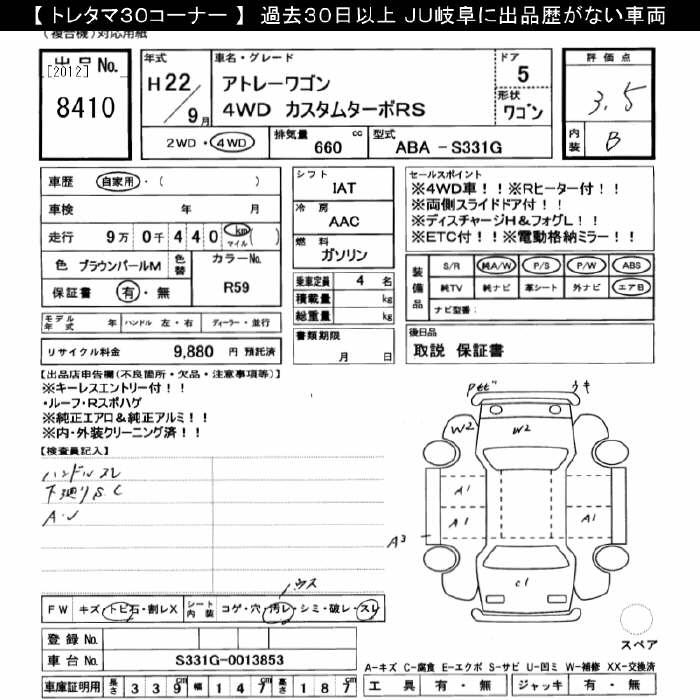 【 トレタマ30コーナー 】 過去30日以上 JU岐阜に出品歴がない車両
(複合機)対応用紙
出品No.
[2012]
8410
年式
H22/9月
車名・グレード
アトレーワゴン
4WD カスタムターボRS
ドア
5
形状
ワゴン
評価点
3.5
内装
B
2WD・4WD
排気量
660 cc
型式
ABA - S331G
車歴 自家用・( )
車検 年 月
走行 9万 0千 4 4 0 km マイル ( )
色 ブラウンパールM
色替
カラーNo.
R59
保証書 有・無
シフト
IAT
冷房
AAC
燃料
ガソリン
乗車定員 4 名
積載量 kg
総重量 kg
書類期限
月 日
セールスポイント
※4WD車!!※Rヒーター付!!
※両側スライドドア付!!
※ディスチャージH&フォグL!!
※ETC付!!※電動格納ミラー!!
装備品
S/R 純A/W P/S P/W ABS
純TV 純ナビ 革シート 外ナビ エアB
ナビ型番:
モデル年式 年 ハンドル 左・右 ディーラー・並行
リサイクル料金 9,880 円 預託済
後日品
取説 保証書
【出品店申告欄(不良箇所・欠品・注意事項等)】
※キーレスエントリー付!!
・ルーフ・Rスポハゲ
※純正エアロ&純正アルミ!!
※内・外装クリーニング済!!
【検査員記入】
ハンドルスレ
下廻りS.C
A.U
ウキ
W2
W2
A1
A1
A1
A3
C1
スペア
FW キズ・トビ石・割レX
シート内装 コゲ・穴・汚レ・シミ・破レ・スレ
登録 No.
車台 No. S331G-0013853
車庫証明用 長さ 3 3 9 cm 幅 1 4 7 cm 高さ 1 8 7 cm
A-キズ C-腐食 E-エクボ S-サビ U-凹ミ W-補修 XX-交換済
工具 有・無 ジャッキ 有・無